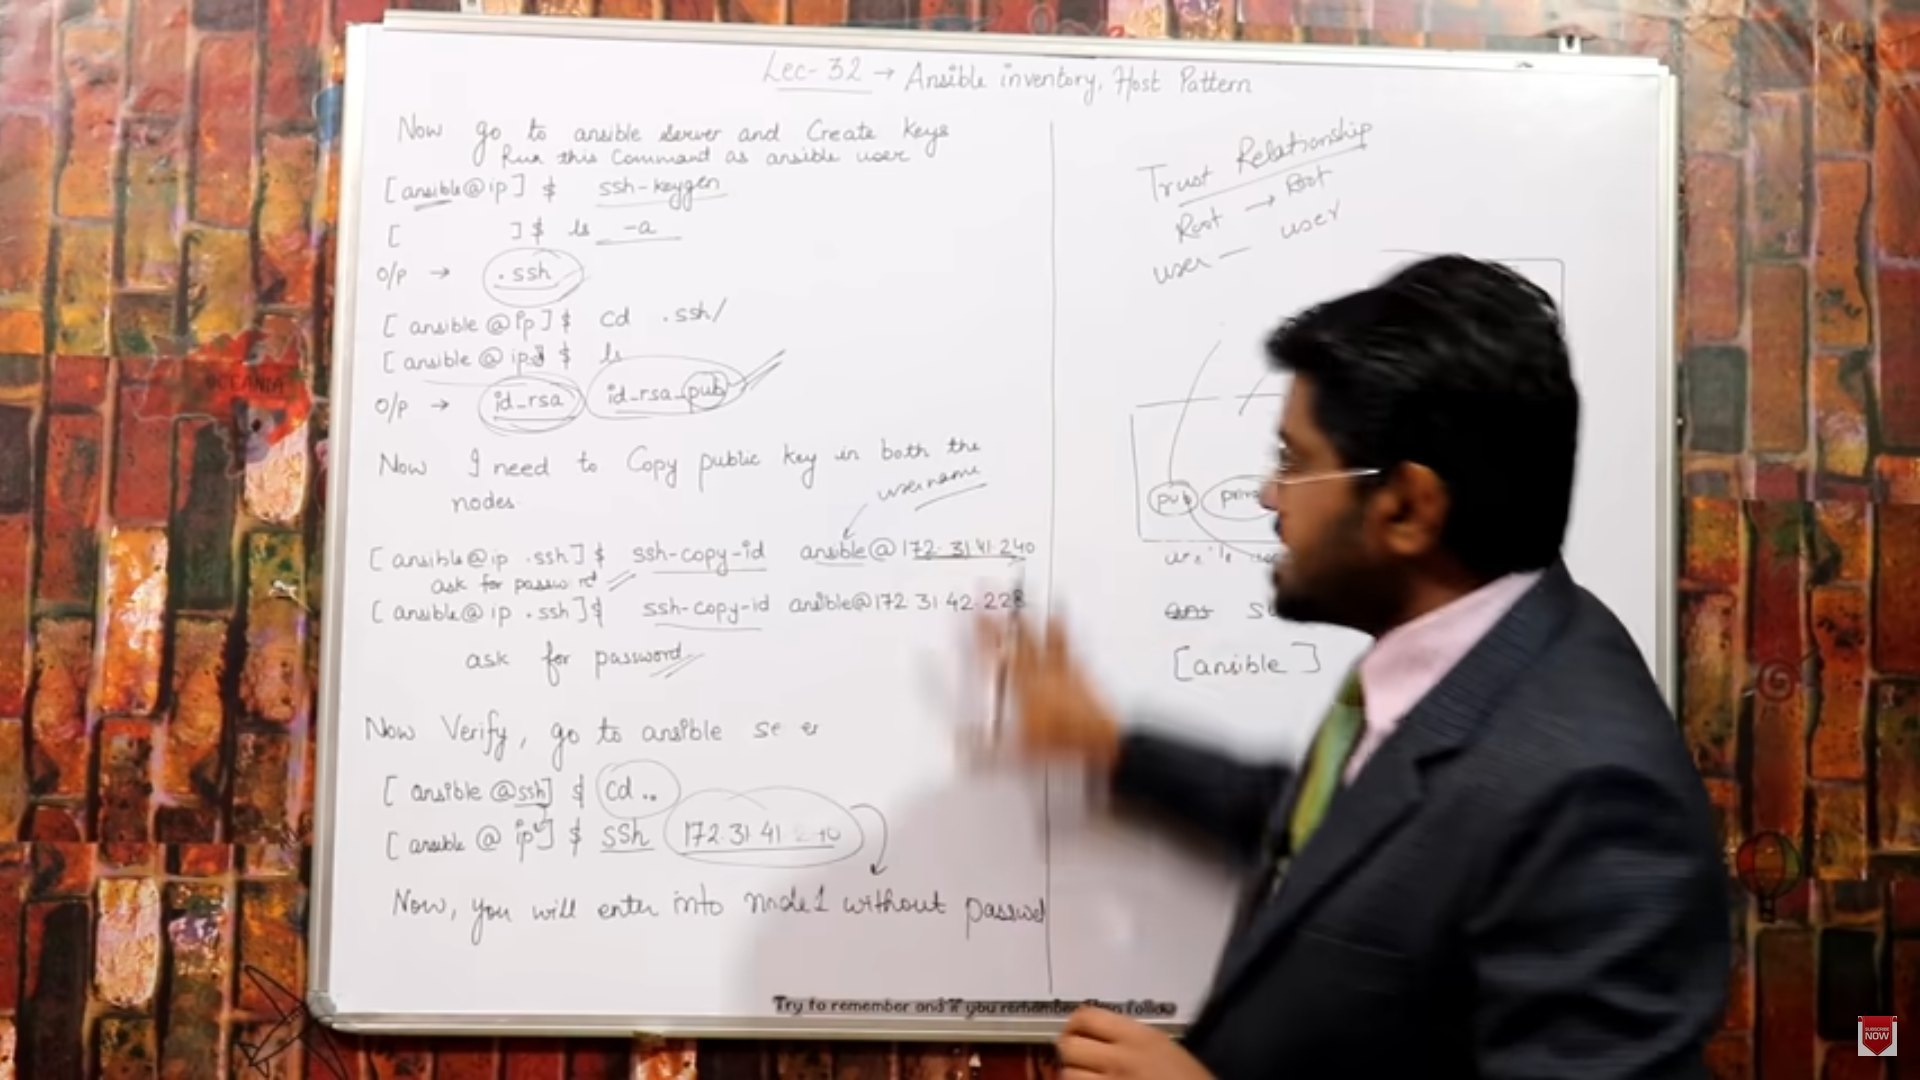 Lec-32 → Ansible inventory, Host Pattern
Now go to ansible server and Create keys
Run this Command as ansible user
[ansible@ip] $ ssh-keygen
[ ]$ ls -a
O/P → .ssh
[ansible@ip]$ cd .ssh/
[ansible@ip]$ ls
O/P → id_rsa id_rsa_pub
Now I need to Copy public key in both the
nodes.
username
[ansible@ip .ssh]$ ssh-copy-id ansible@172.31.41.240
ask for password
[ansible@ip .ssh]$ ssh-copy-id ansible@172.31.42.228
ask for password
Now Verify, go to ansible se er
[ansible @ssh] $ cd ..
[ansible @ ip] $ ssh 172.31.41.240
Now, you will enter into node1 without passwd
Trust Relationship
Root → Root
user — user
pub
[ansible]
Try to remember and if you remember then follow
SUBSCRIBE
NOW
OCEANIA